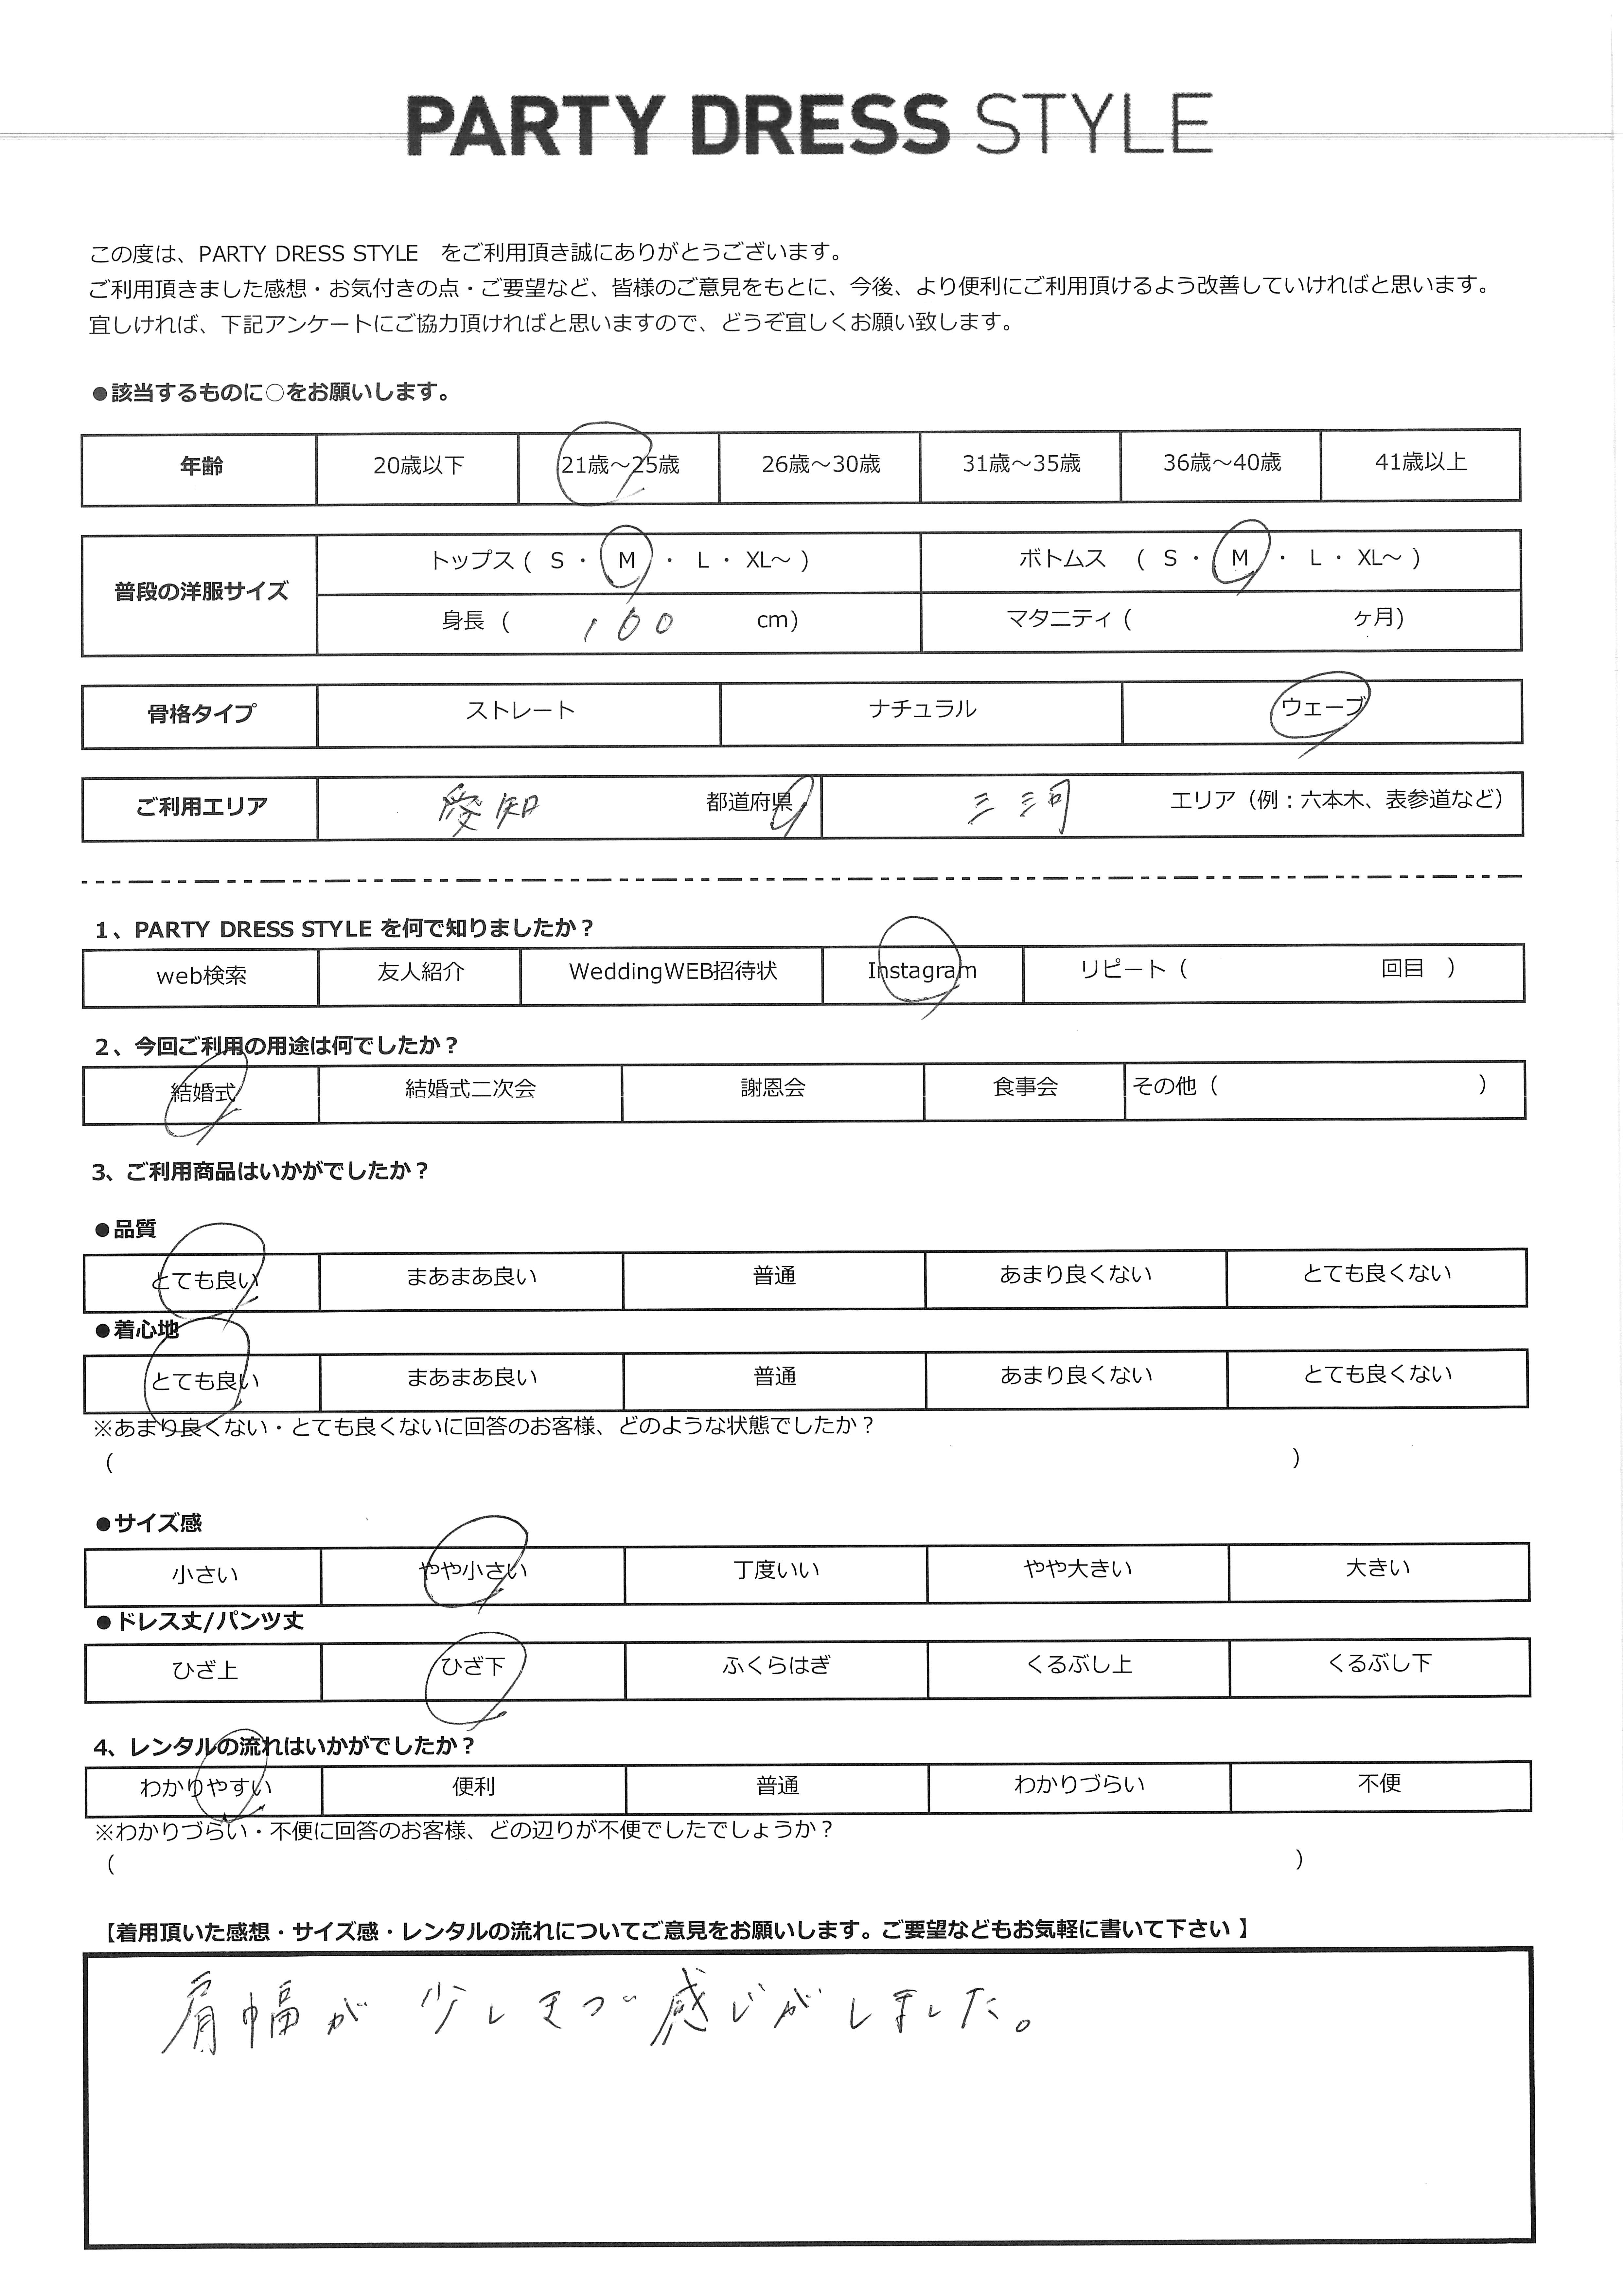 PARTY DRESS STYLE
この度は、PARTY DRESS STYLE をご利用頂き誠にありがとうございます。
ご利用頂きました感想・お気付きの点・ご要望など、皆様のご意見をもとに、今後、より便利にご利用頂けるよう改善していければと思います。
宜しければ、下記アンケートにご協力頂ければと思いますので、どうぞ宜しくお願い致します。
●該当するものに○をお願いします。
年齢 20歳以下 21歳～25歳 26歳～30歳 31歳～35歳 36歳～40歳 41歳以上
普段の洋服サイズ トップス ( S ・ M ・ L ・ XL～ ) ボトムス ( S ・ M ・ L ・ XL～ )
身長 ( 160 cm) マタニティ ( ヶ月)
骨格タイプ ストレート ナチュラル ウェーブ
ご利用エリア 愛知 都道府県 三河 エリア（例：六本木、表参道など）
1、PARTY DRESS STYLE を何で知りましたか？
web検索 友人紹介 WeddingWEB招待状 Instagram リピート（ 回目 ）
2、今回ご利用の用途は何でしたか？
結婚式 結婚式二次会 謝恩会 食事会 その他（ ）
3、ご利用商品はいかがでしたか？
●品質
とても良い まあまあ良い 普通 あまり良くない とても良くない
●着心地
とても良い まあまあ良い 普通 あまり良くない とても良くない
※あまり良くない・とても良くないに回答のお客様、どのような状態でしたか？
（ ）
●サイズ感
小さい やや小さい 丁度いい やや大きい 大きい
●ドレス丈/パンツ丈
ひざ上 ひざ下 ふくらはぎ くるぶし上 くるぶし下
4、レンタルの流れはいかがでしたか？
わかりやすい 便利 普通 わかりづらい 不便
※わかりづらい・不便に回答のお客様、どの辺りが不便でしたでしょうか？
（ ）
【着用頂いた感想・サイズ感・レンタルの流れについてご意見をお願いします。ご要望などもお気軽に書いて下さい 】
肩幅が 少し 感じがしました。